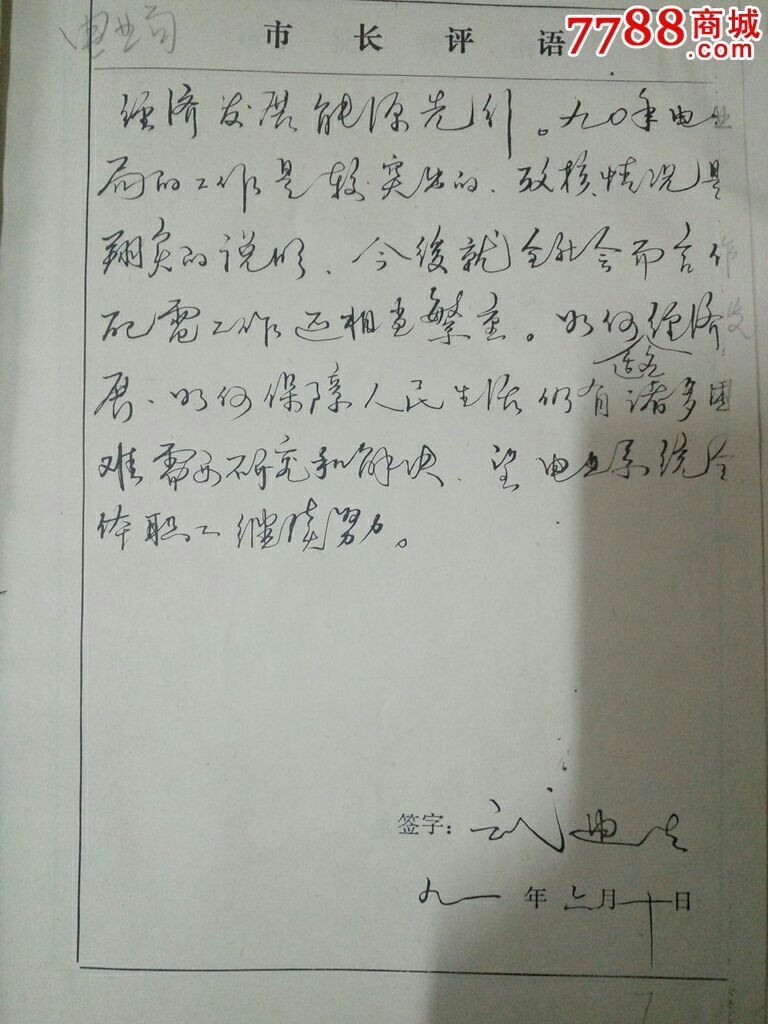 电业局
市长评语
7788商城
.com
经济发展能源先行。九〇年电业
局的工作是较突出的、考核情况是
翔实的说明、今後就全社会而言作
配電工作还相当繁重。如何经济发
展、如何保障人民生活仍有诸多困
难需要研究和解决、望电业系统全
体职工继续努力。
签字:武典
九一年二月十日